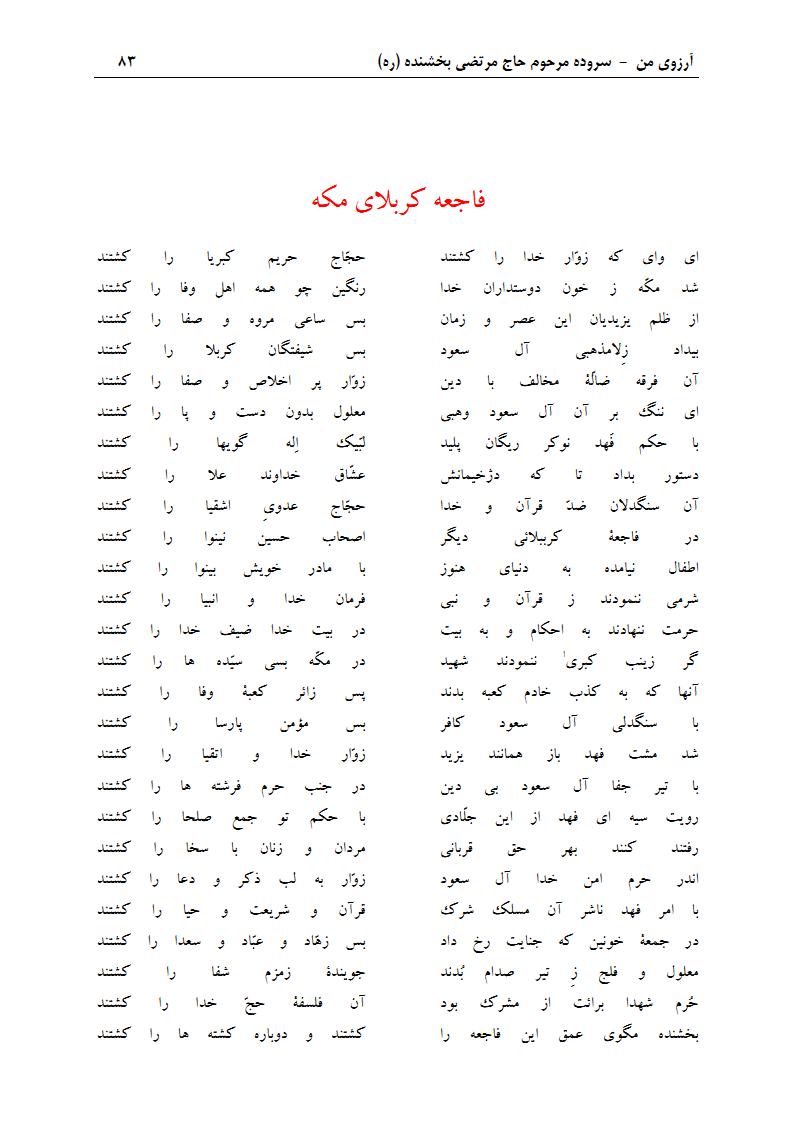 آرزوی من - سروده مرحوم حاج مرتضی بخشنده (ره) ۸۳
فاجعه کربلای مکه
ای وای که زوّار خدا را کشتند حجّاج حریم کبریا را کشتند
شد مکّه ز خون دوستداران خدا رنگین چو همه اهل وفا را کشتند
از ظلم یزیدیان این عصر و زمان بس ساعی مروه و صفا را کشتند
بیداد زِلامذهبی آل سعود بس شیفتگان کربلا را کشتند
آن فرقه ضالّهٔ مخالف با دین زوّار پر اخلاص و صفا را کشتند
ای ننگ بر آن آل سعود وهبی معلول بدون دست و پا را کشتند
با حکم فَهد نوکر ریگان پلید لبّیک اِله گویها را کشتند
دستور بداد تا که دژخیمانش عشّاق خداوند علا را کشتند
آن سنگدلان ضدّ قرآن و خدا حجّاج عدویِ اشقیا را کشتند
در فاجعهٔ کرببلائی دیگر اصحاب حسین نینوا را کشتند
اطفال نیامده به دنیای هنوز با مادر خویش بینوا را کشتند
شرمی ننمودند ز قرآن و نبی فرمان خدا و انبیا را کشتند
حرمت ننهادند به احکام و به بیت در بیت خدا ضیف خدا را کشتند
گر زینب کبریٰ ننمودند شهید در مکّه بسی سیّده ها را کشتند
آنها که به کذب خادم کعبه بدند پس زائر کعبهٔ وفا را کشتند
با سنگدلی آل سعود کافر بس مؤمن پارسا را کشتند
شد مشت فهد باز همانند یزید زوّار خدا و اتقیا را کشتند
با تیر جفا آل سعود بی دین در جنب حرم فرشته ها را کشتند
رویت سیه ای فهد از این جلّادی با حکم تو جمع صلحا را کشتند
رفتند کنند بهر حق قربانی مردان و زنان با سخا را کشتند
اندر حرم امن خدا آل سعود زوّار به لب ذکر و دعا را کشتند
با امر فهد ناشر آن مسلک شرک قرآن و شریعت و حیا را کشتند
در جمعهٔ خونین که جنایت رخ داد بس زهّاد و عبّاد و سعدا را کشتند
معلول و فلج زِ تیر صدام بُدند جویندهٔ زمزم شفا را کشتند
جُرم شهدا برائت از مشرک بود آن فلسفهٔ حجّ خدا را کشتند
بخشنده مگوی عمق این فاجعه را کشتند و دوباره کشته ها را کشتند